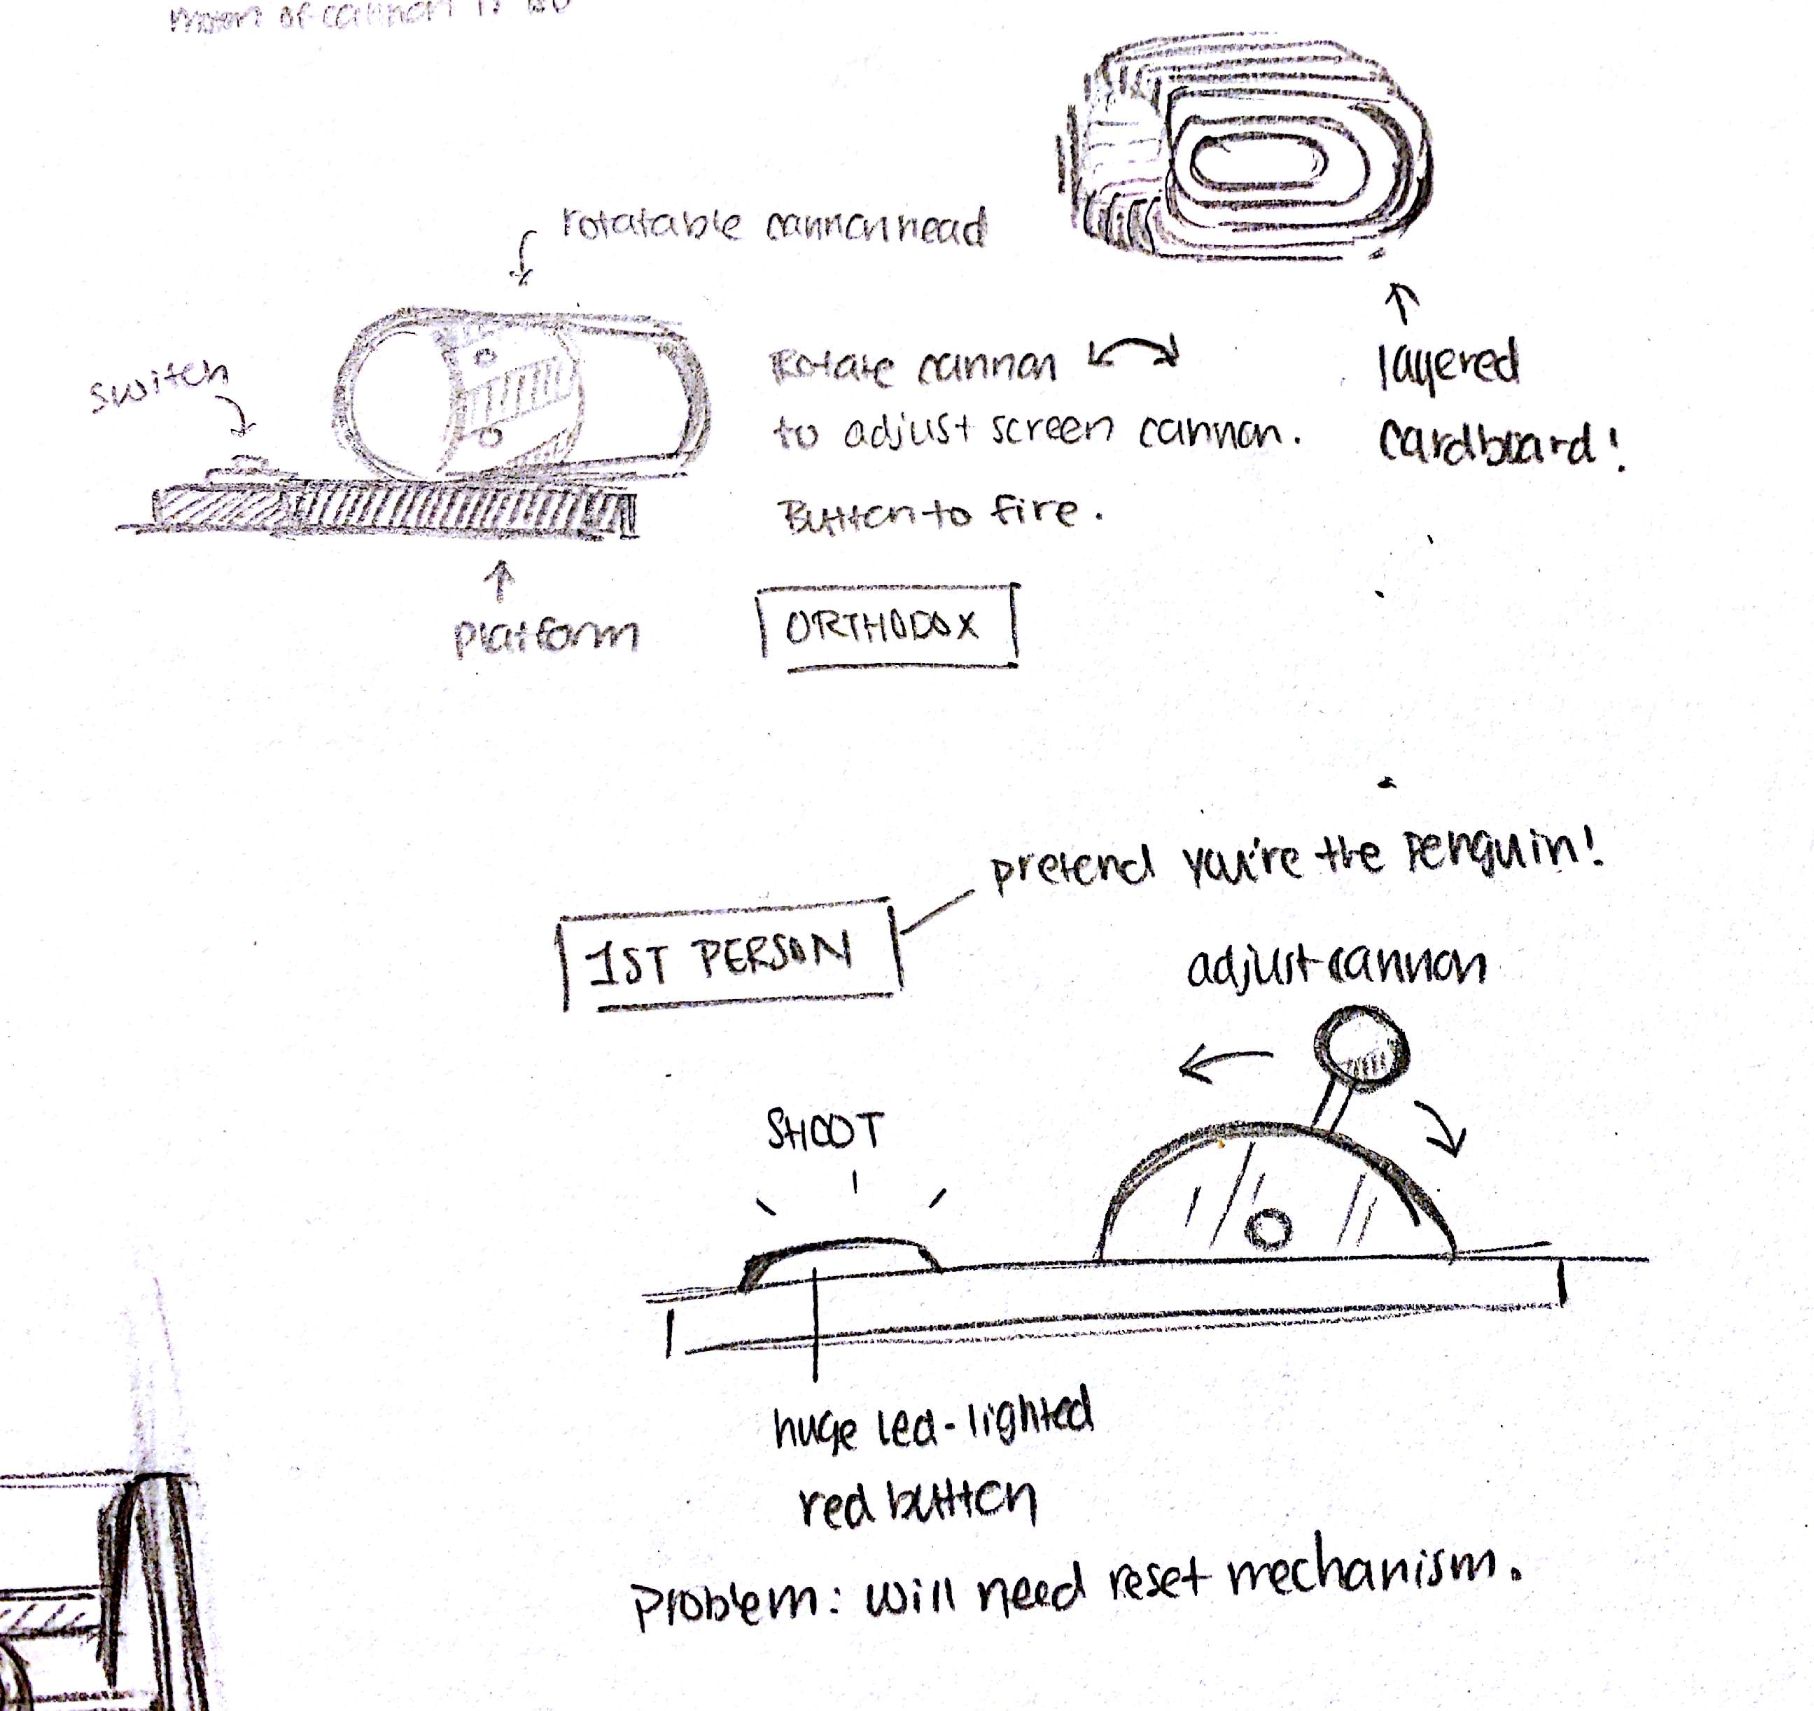 of cannon is
rotatable cannonhead
switch
Rotate cannon
to adjust screen cannon.
Button to fire.
layered
cardboard!
platform
ORTHODOX
pretend you're the penguin!
1ST PERSON
adjust cannon
SHOOT
huge led-lighted
red button
Problem: will need reset mechanism.